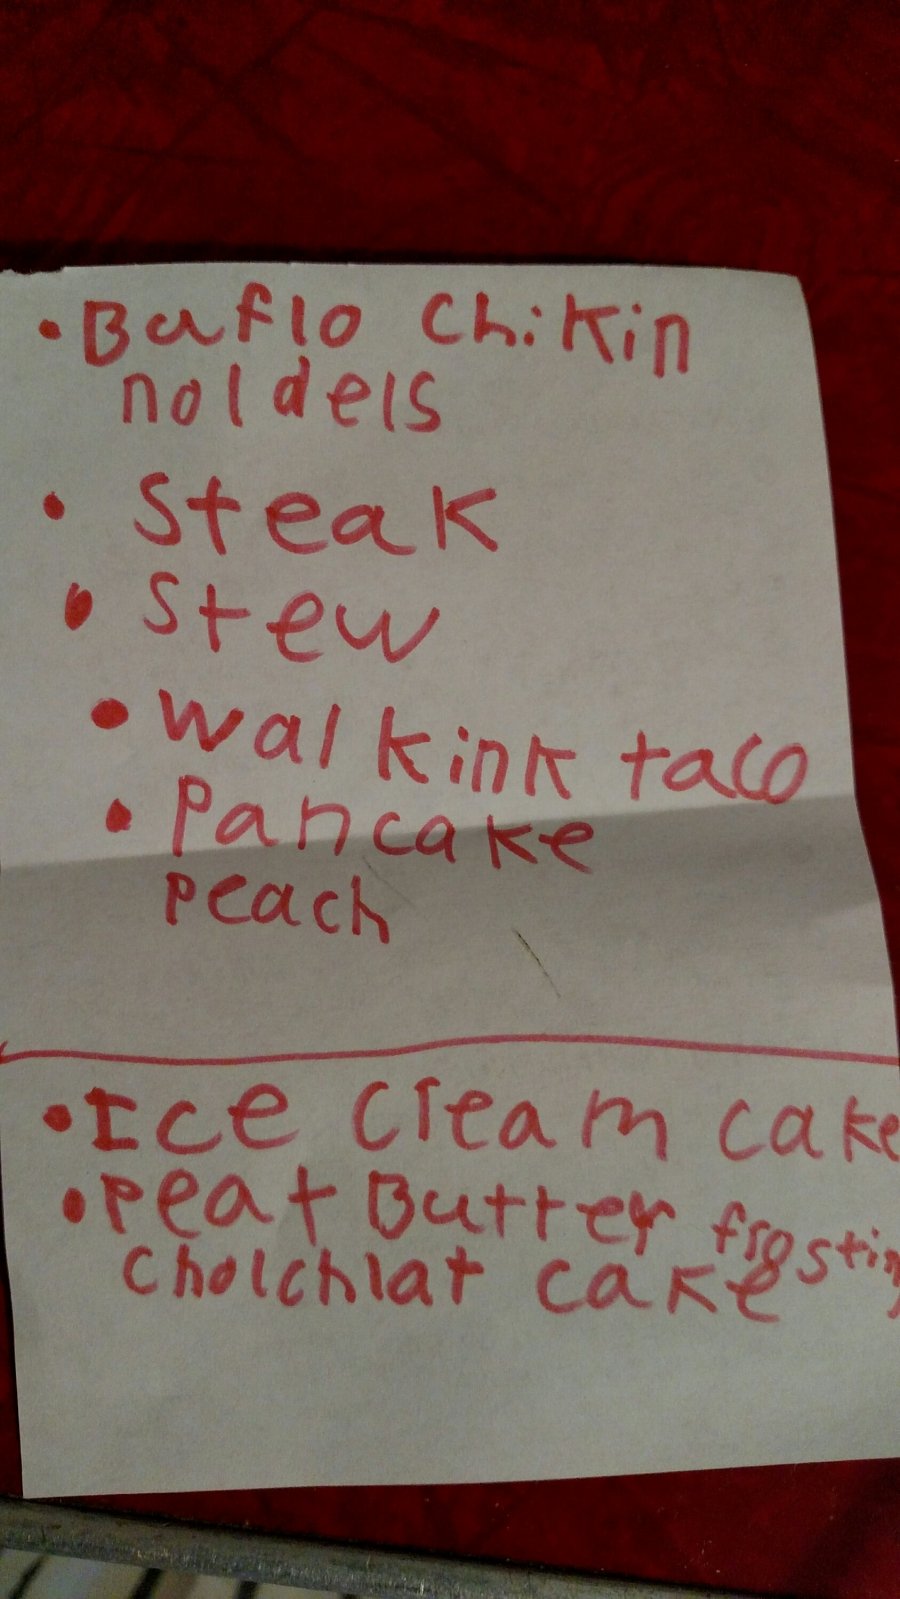 • Baflo Chikin
noldels
• Steak
• Stew
• walkink taco
• Pancake
peach
• Ice cream cake
• Peat Butter frosting
cholchlat cake